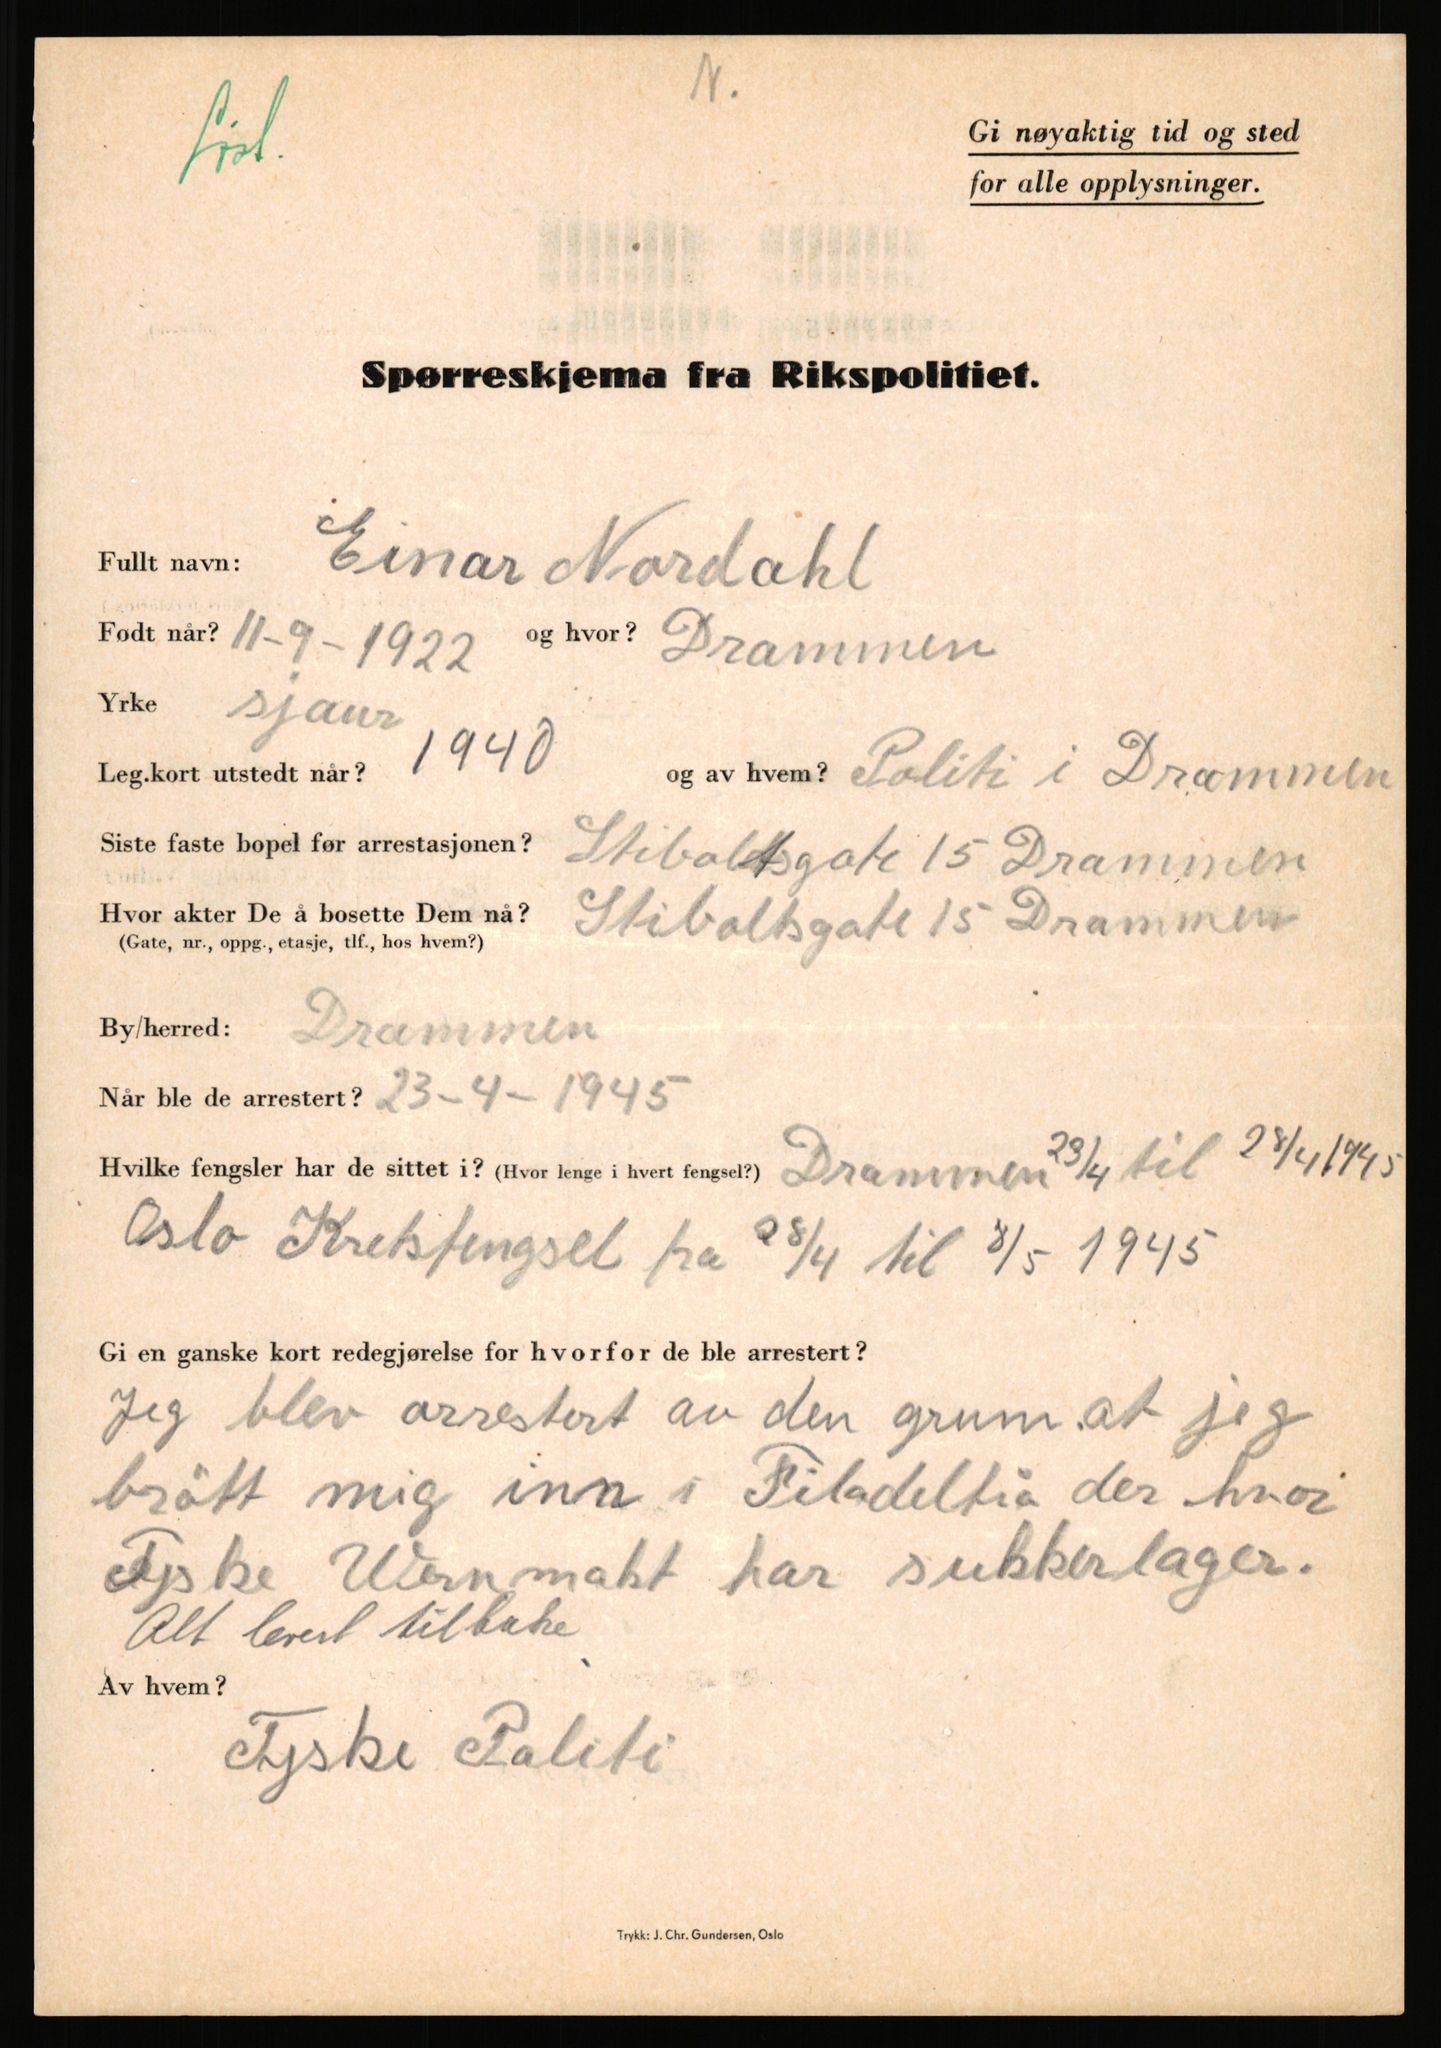 N.
Gi nøyaktig tid og sted
for alle opplysninger.
Spørreskjema fra Rikspolitiet.
Fullt navn: Einar Nordahl
Født når? 11-9-1922 og hvor? Drammen
Yrke sjaur
Leg.kort utstedt når? 1940 og av hvem? Politi i Drammen
Siste faste bopel før arrestasjonen? Stiboltsgate 15 Drammen
Hvor akter De å bosette Dem nå? Stiboltsgate 15 Drammen
(Gate, nr., oppg., etasje, tlf., hos hvem?)
By/herred: Drammen
Når ble de arrestert? 23-4-1945
Hvilke fengsler har de sittet i? (Hvor lenge i hvert fengsel?) Drammen 23/4 til 28/4 1945
Oslo Kretsfengsel fra 28/4 til 8/5 1945
Gi en ganske kort redegjørelse for hvorfor de ble arrestert?
Jeg blev arrestert av den grum at jeg
brøtt mig inn i Filadelfia der hvor
Tyske Wernmakt har sukkerlager.
Alt levert tilbake
Av hvem?
Tyske Politi
Trykk: J. Chr. Gundersen, Oslo